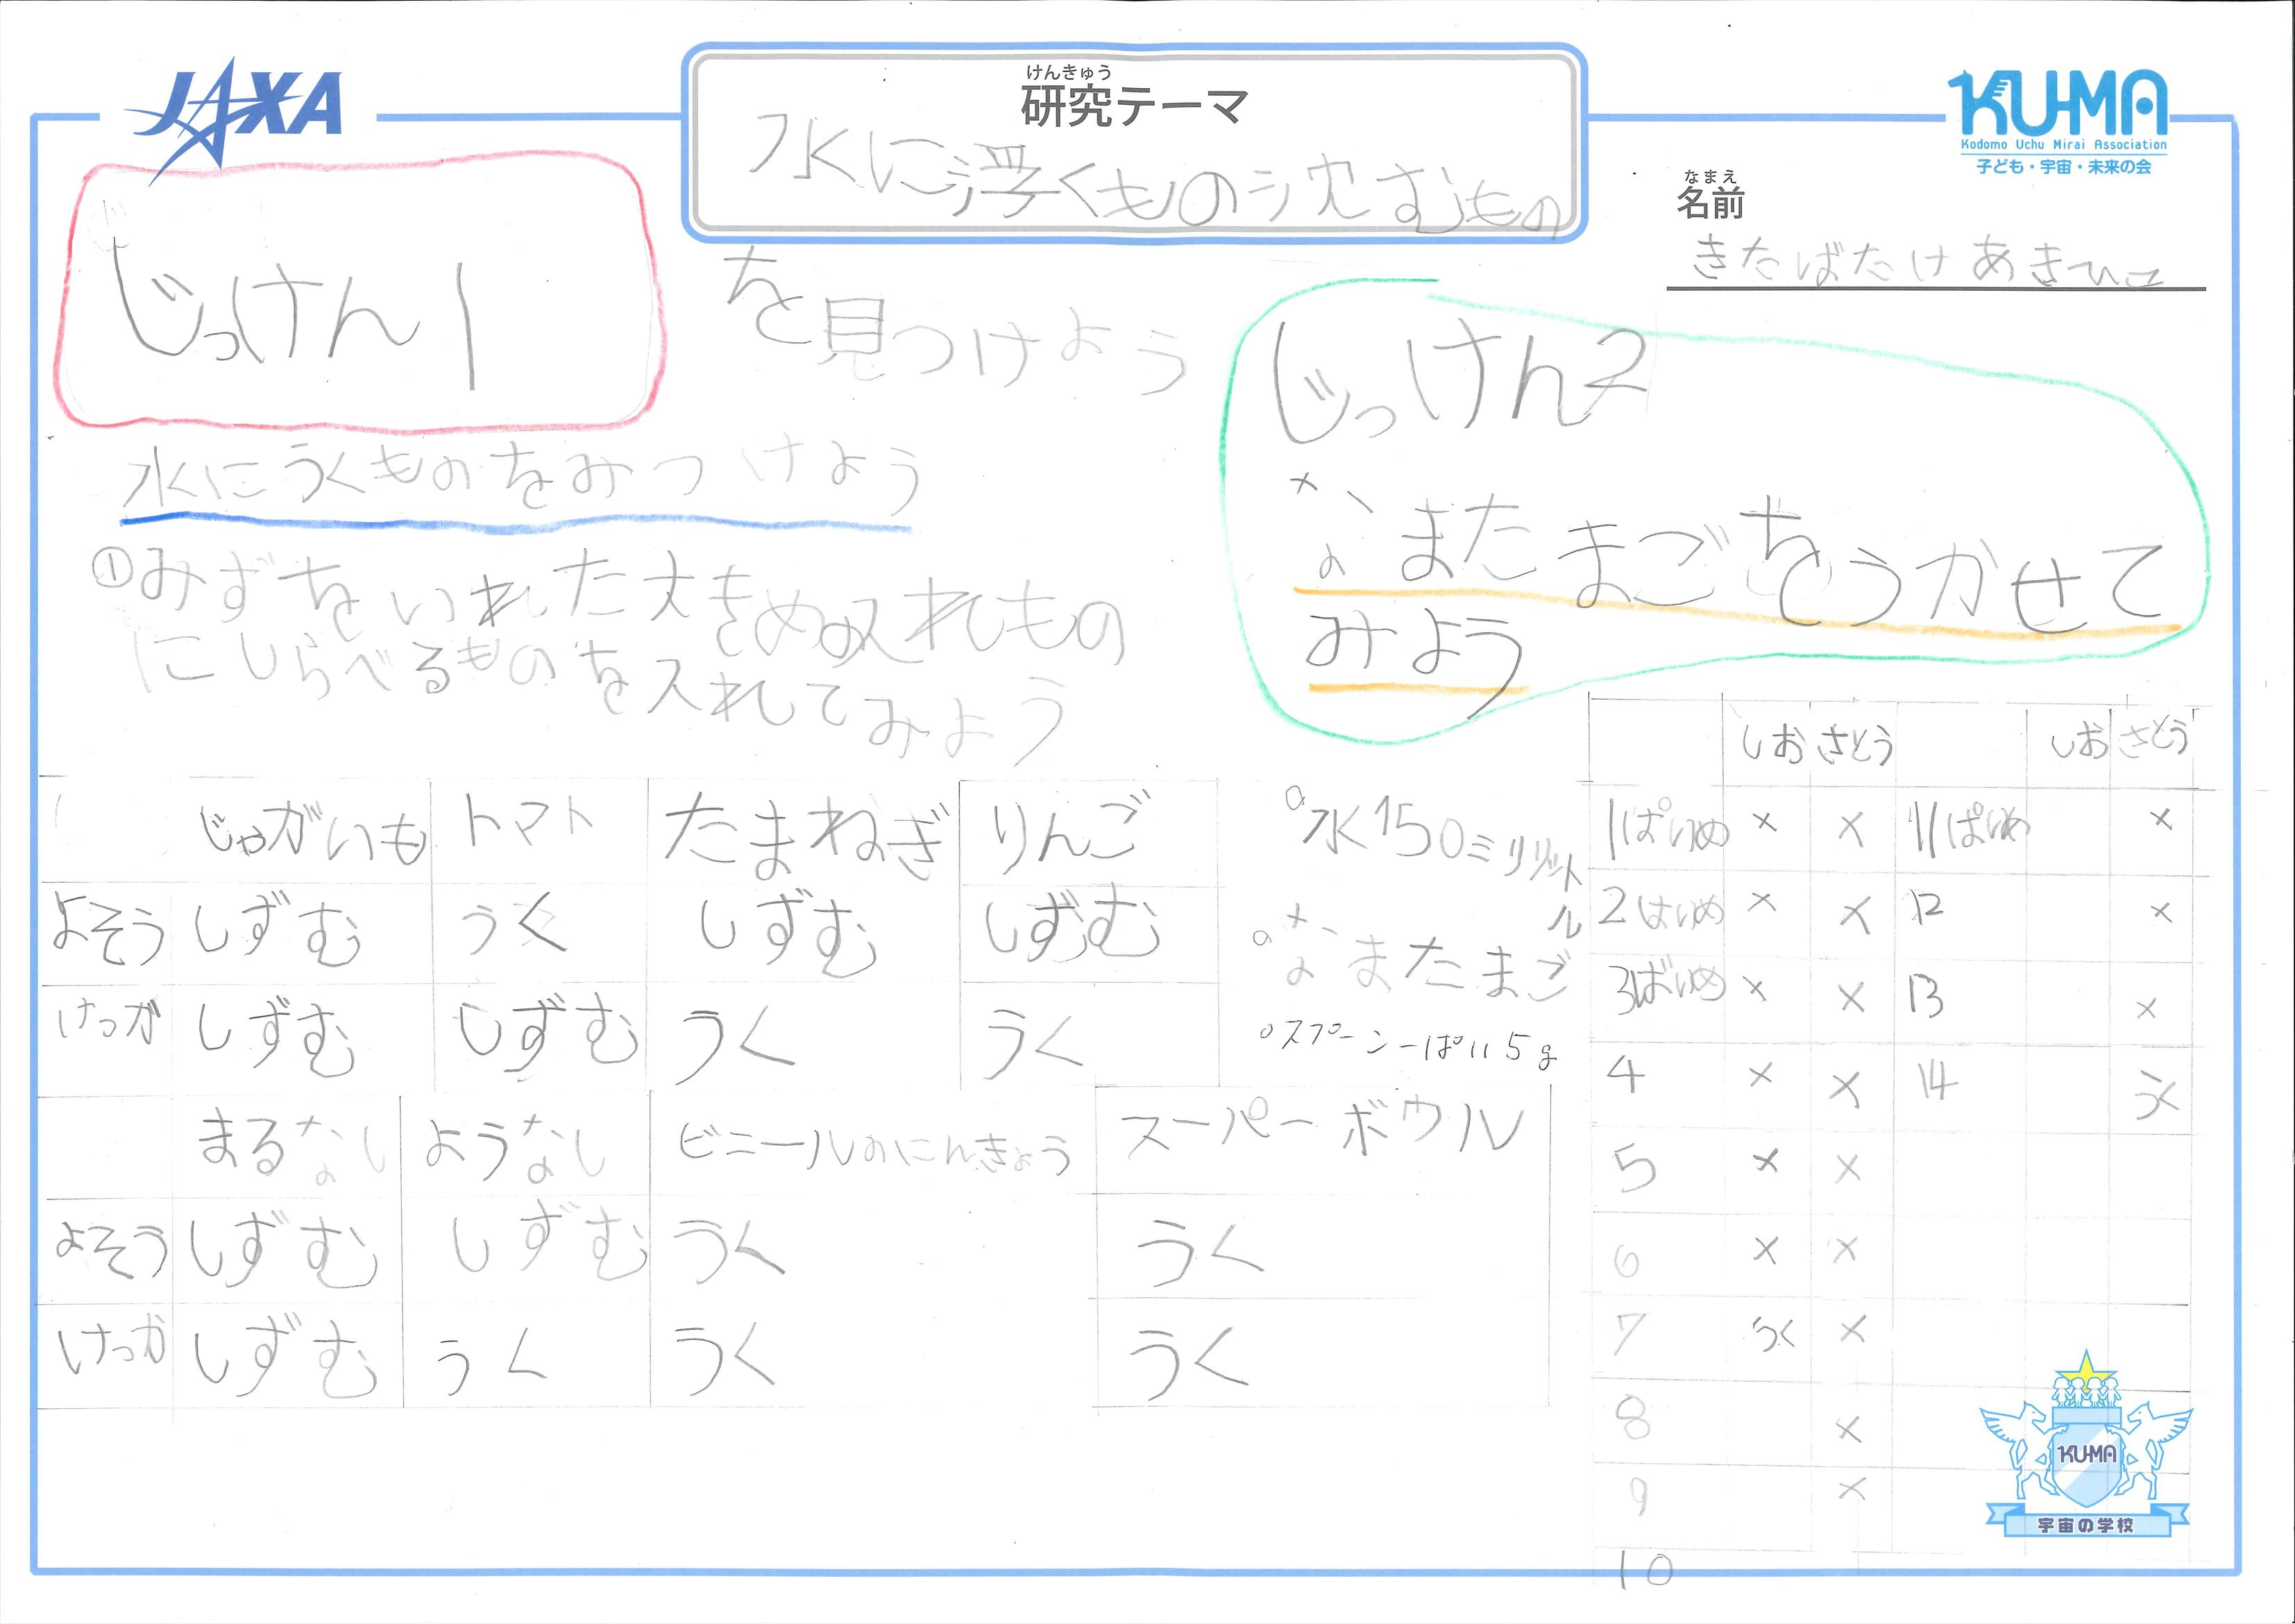 JAXA
けんきゅう
研究テーマ
水に浮くもの沈むもの
を見つけよう
KU-MA
Kodomo Uchu Mirai Association
子ども・宇宙・未来の会
なまえ
名前
きたばたけあきひこ
じっけん1
水にうくものをみつけよう
①みずをいれた大きめの入れもの
にしらべるものを入れてみよう
じゃがいも トマト たまねぎ りんご
よそう しずむ うく しずむ しずむ
けっか しずむ しずむ うく うく
まるなし ようなし ビニールのにんぎょう スーパーボウル
よそう しずむ しずむ うく うく
けっか しずむ うく うく うく
じっけん2
なまたまごをうかせて
みよう
水150ミリリットル
なまたまご
スプーン一ぱい5g
しお さとう しお さとう
1ぱいめ × × 11ぱいめ ×
2はいめ × × 12 ×
3ばいめ × × 13 ×
4 × × 14 うく
5 × ×
6 × ×
7 うく ×
8 ×
9 ×
10
KU-MA
宇宙の学校